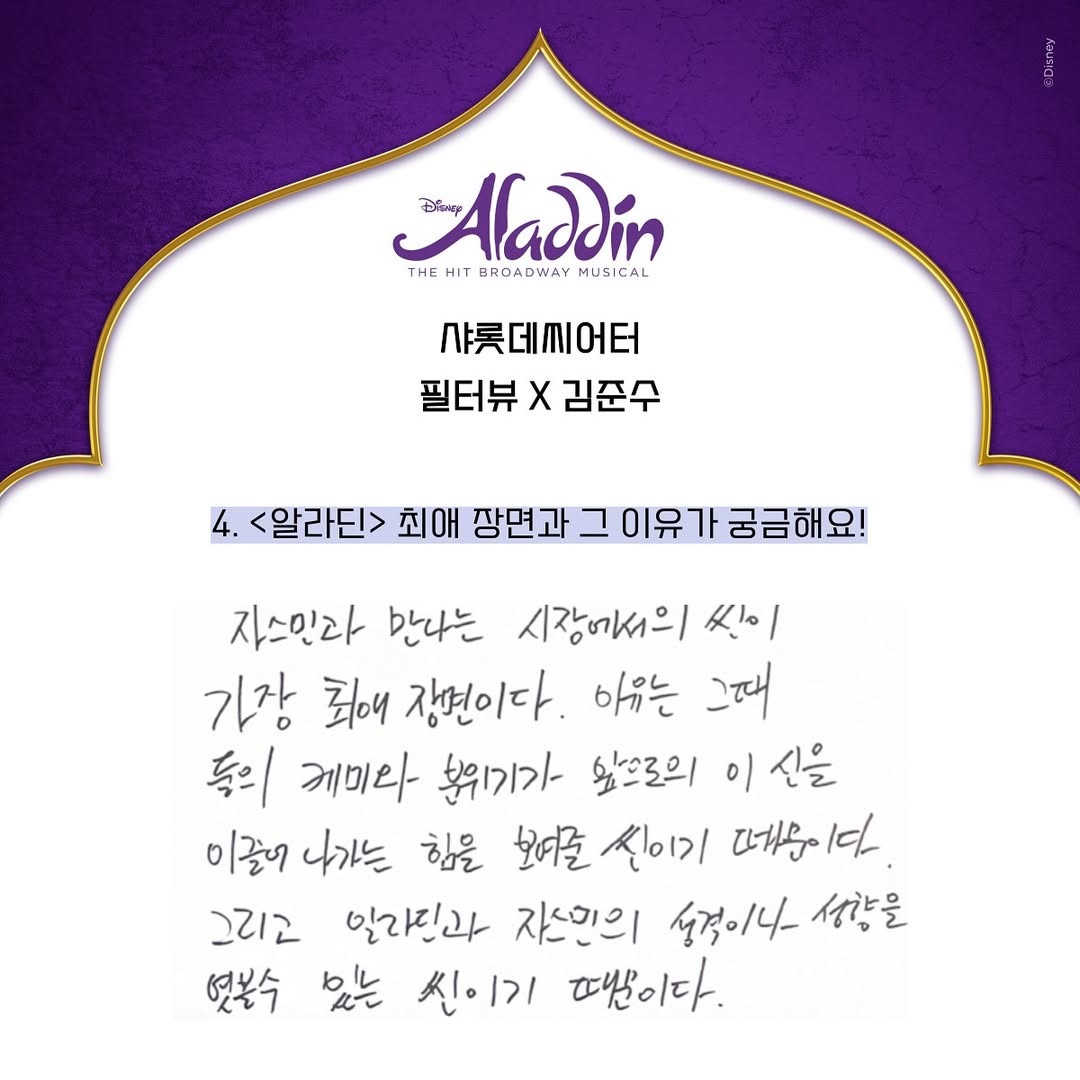 ©Disney
Disney
Aladdin
THE HIT BROADWAY MUSICAL
샤롯데씨어터
필터뷰 X 김준수
4. <알라딘> 최애 장면과 그 이유가 궁금해요!
자스민과 만나는 시장에서의 씬이
가장 최애 장면이다. 이유는 그때
둘의 케미와 분위기가 앞으로의 이 신을
이끌어 나가는 힘을 보여줄 씬이기 때문이다.
그리고 알라딘과 자스민의 성격이나 성향을
엿볼수 있는 씬이기 때문이다.